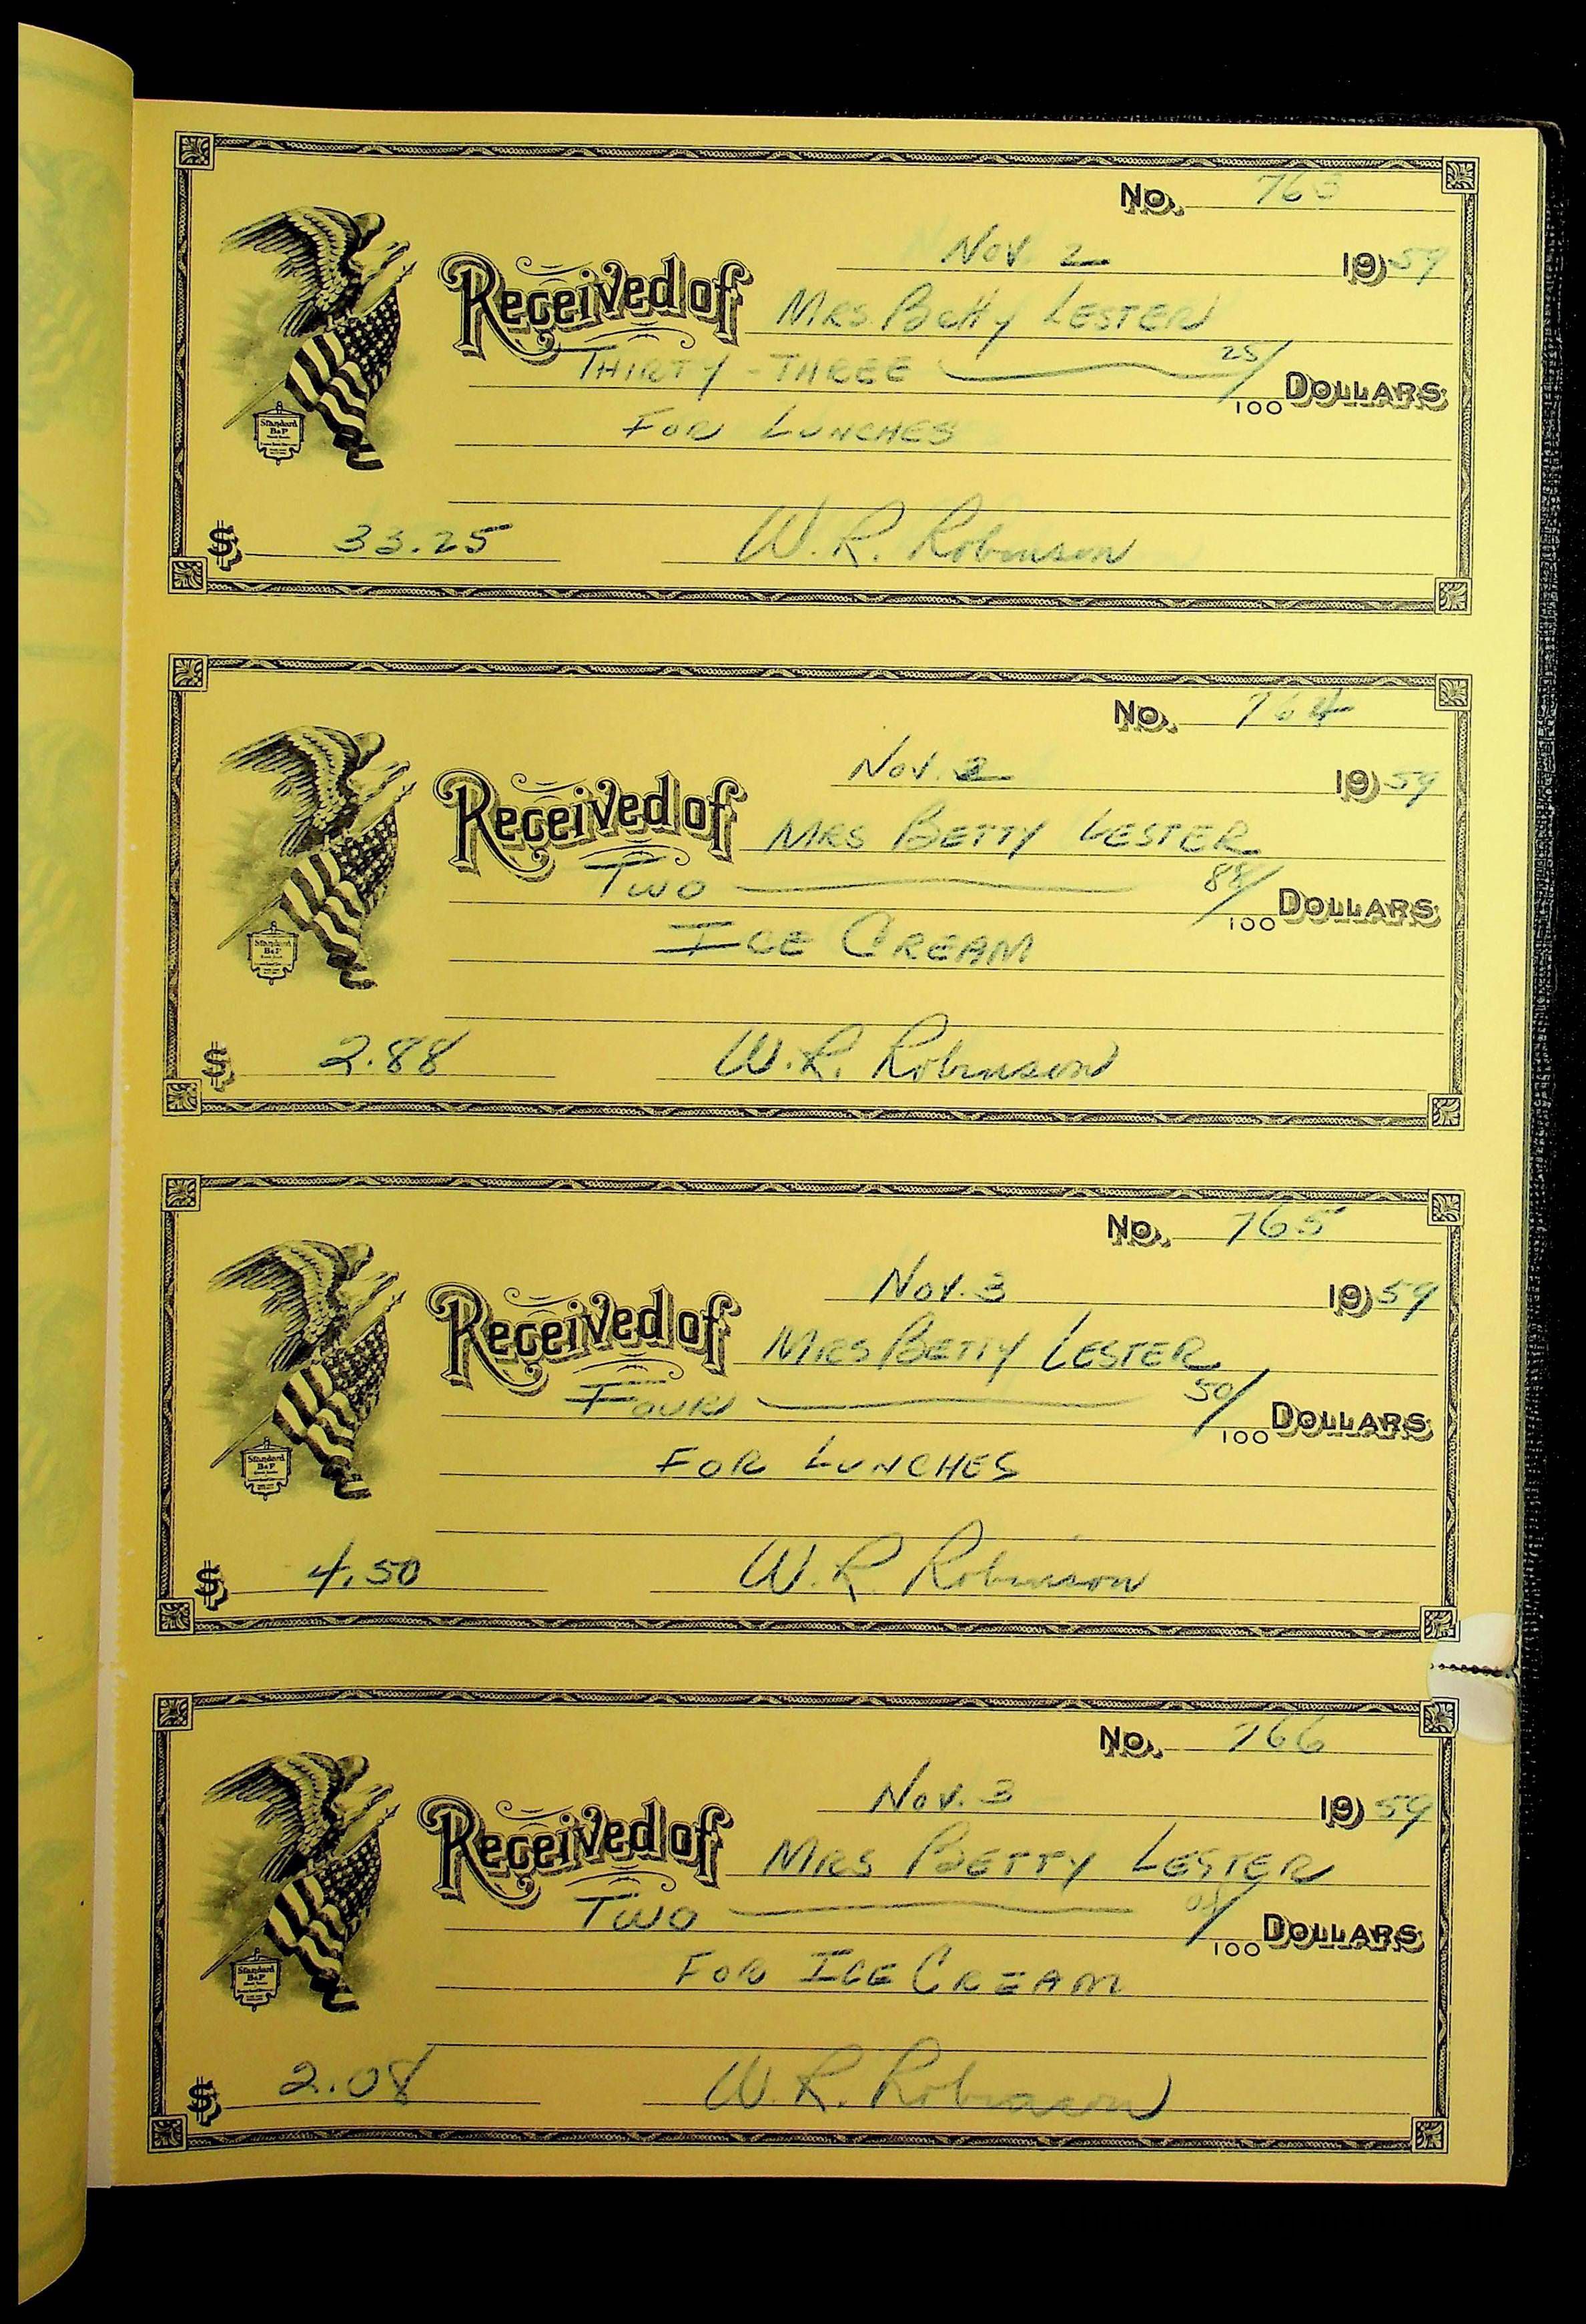 No. 763
Nov. 2 1959
Received of Mrs. Betty Lester
Thirty-Three 25/100 Dollars
For Lunches
Standard
B&P
$ 33.25 W. R. Robinson
No. 764
Nov. 2 1959
Received of Mrs Betty Lester
Two 88/100 Dollars
Ice Cream
Standard
B&P
$ 2.88 W. R. Robinson
No. 765
Nov. 3 1959
Received of Mrs Betty Lester
Four 50/100 Dollars
For Lunches
Standard
B&P
$ 4.50 W. R. Robinson
No. 766
Nov. 3 1959
Received of Mrs Betty Lester
Two 08/100 Dollars
For Ice Cream
Standard
B&P
$ 2.08 W. R. Robinson